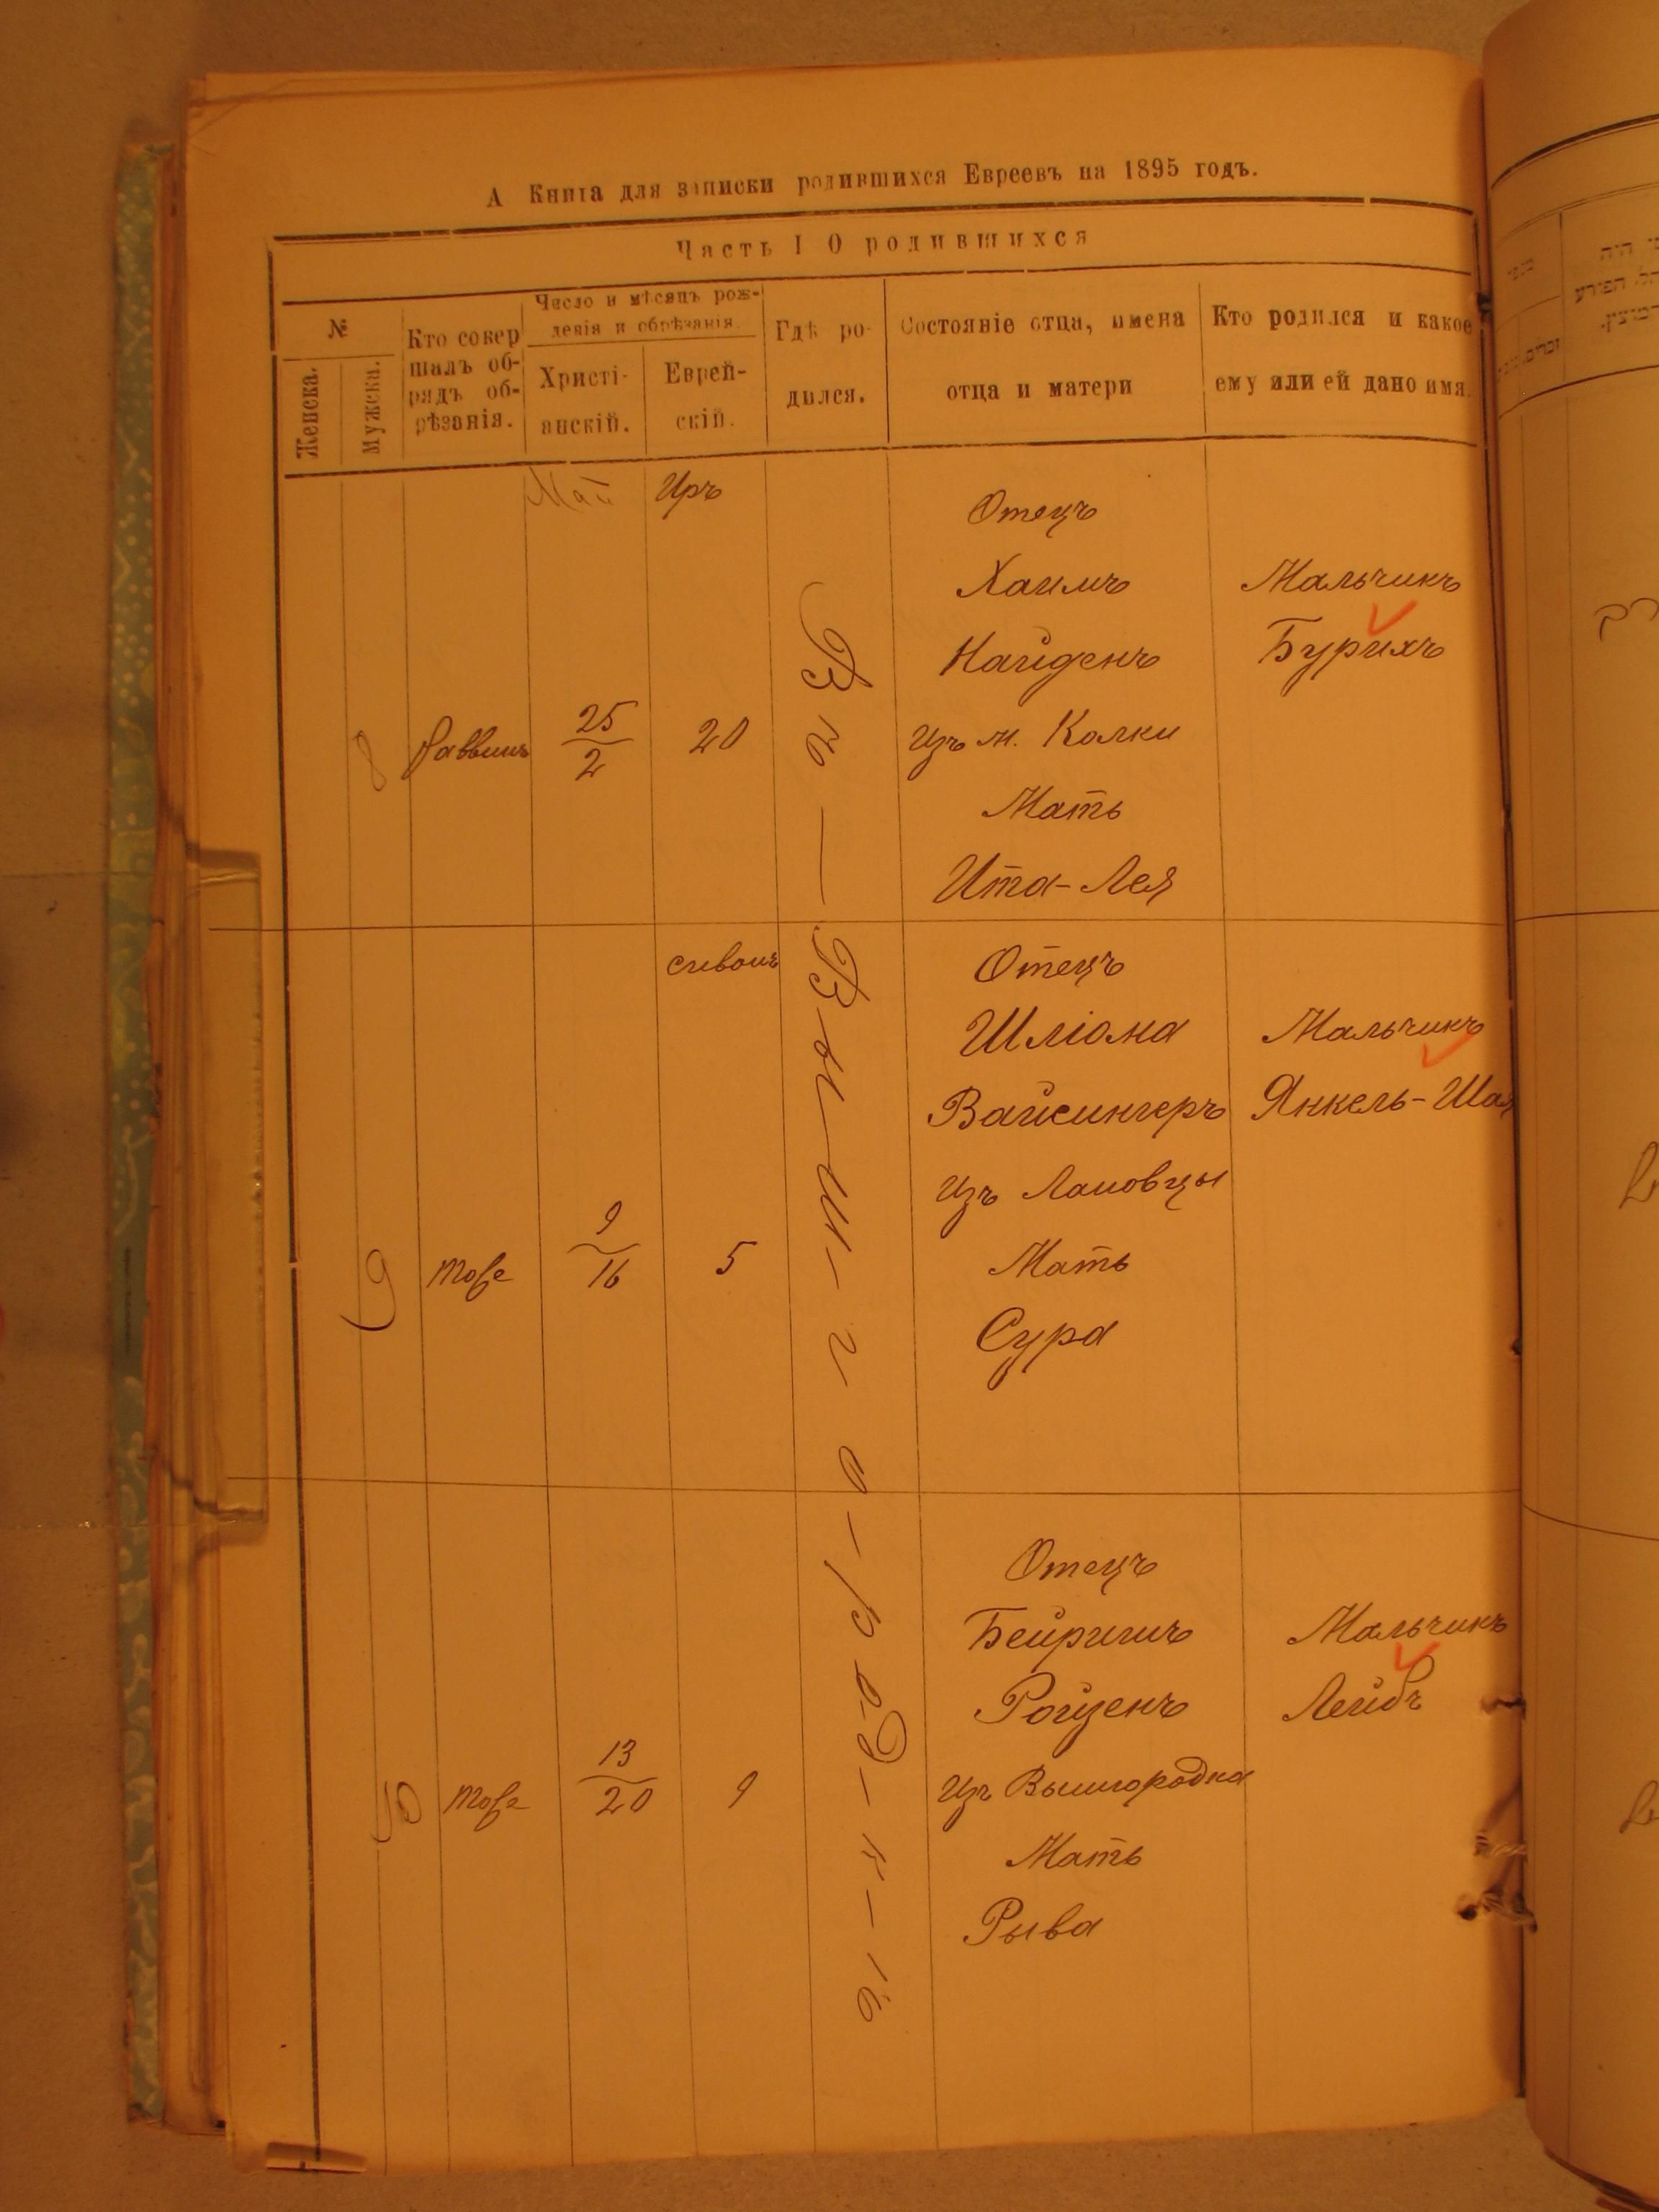 А Книга для записки родившихся Евреевъ на 1895 годъ.
Часть I О родившихся
№
Женска.
Мужска.
Кто совер
шалъ об-
рядъ об-
рѣзанія.
Число и мѣсяцъ рож-
денія и обрѣзанія.
Христі-
анскій.
Еврей-
скій.
Гдѣ ро-
дился.
Состояніе отца, имена
отца и матери
Кто родился и какое
ему или ей дано имя.
Май
Иръ
8
Раввинъ
25
2
20
Въ — Вы-ш-г о-род-к-ѣ
Отецъ
Хаимъ
Найденъ
Изъ м. Колки
Мать
Ита-Лея
Мальчикъ
Бурихъ
сивонъ
9
тоже
9
16
5
Отецъ
Шліома
Вайсингеръ
Изъ Лановцы
Мать
Сура
Мальчикъ
Янкель-Шая
10
тоже
13
20
9
Отецъ
Бейришъ
Ройзенъ
Изъ Вышгородка
Мать
Рыва
Мальчикъ
Лейбъ